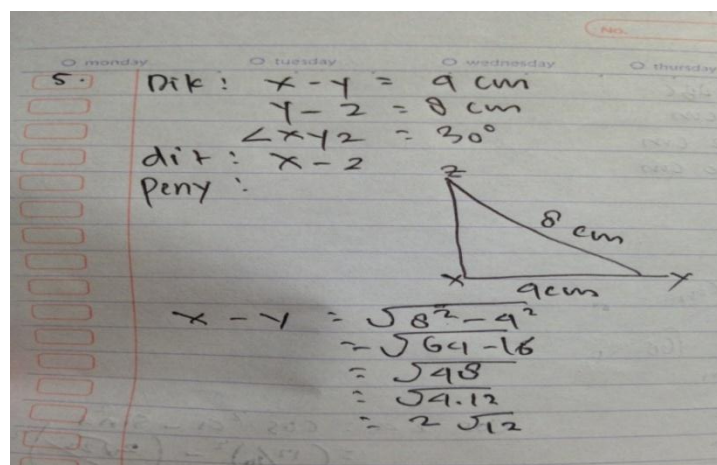 No.
monday tuesday wednesday thursday
5. Dik : x - y = 4 cm
y - z = 8 cm
∠xyz = 30°
dit : x - z
Peny :
z
8 cm
x y
4cm
x - y = √8² - 4²
= √64 - 16
= √48
= √4.12
= 2 √12